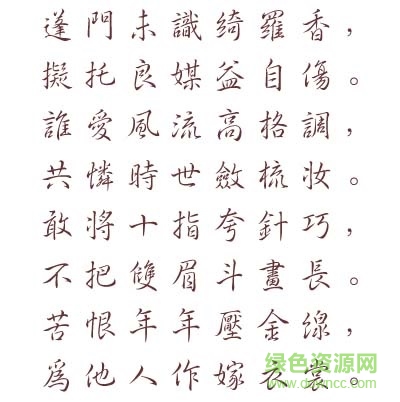 蓬門未識綺羅香，
擬托良媒益自傷。
誰愛風流高格調，
共憐時世斂梳妝。
敢將十指夸針巧，
不把雙眉斗畫長。
苦恨年年壓金線，
為他人作嫁衣裳。
绿色资源网
www.downcc.com